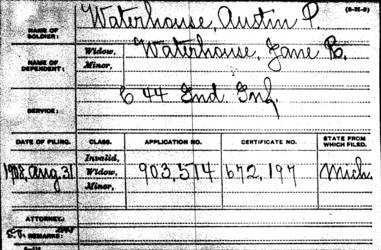 (3-316)
NAME OF SOLDIER: Waterhouse, Austin P.
NAME OF DEPENDENT: Widow, Waterhouse, Jane B.
Minor,
SERVICE: E 44 Ind. Inf.
DATE OF FILING. CLASS. APPLICATION NO. CERTIFICATE NO. STATE FROM WHICH FILED.
Invalid,
1908, Aug. 31 Widow, 903,574 672,197 Mich.
Minor,
ATTORNEY:
REMARKS: